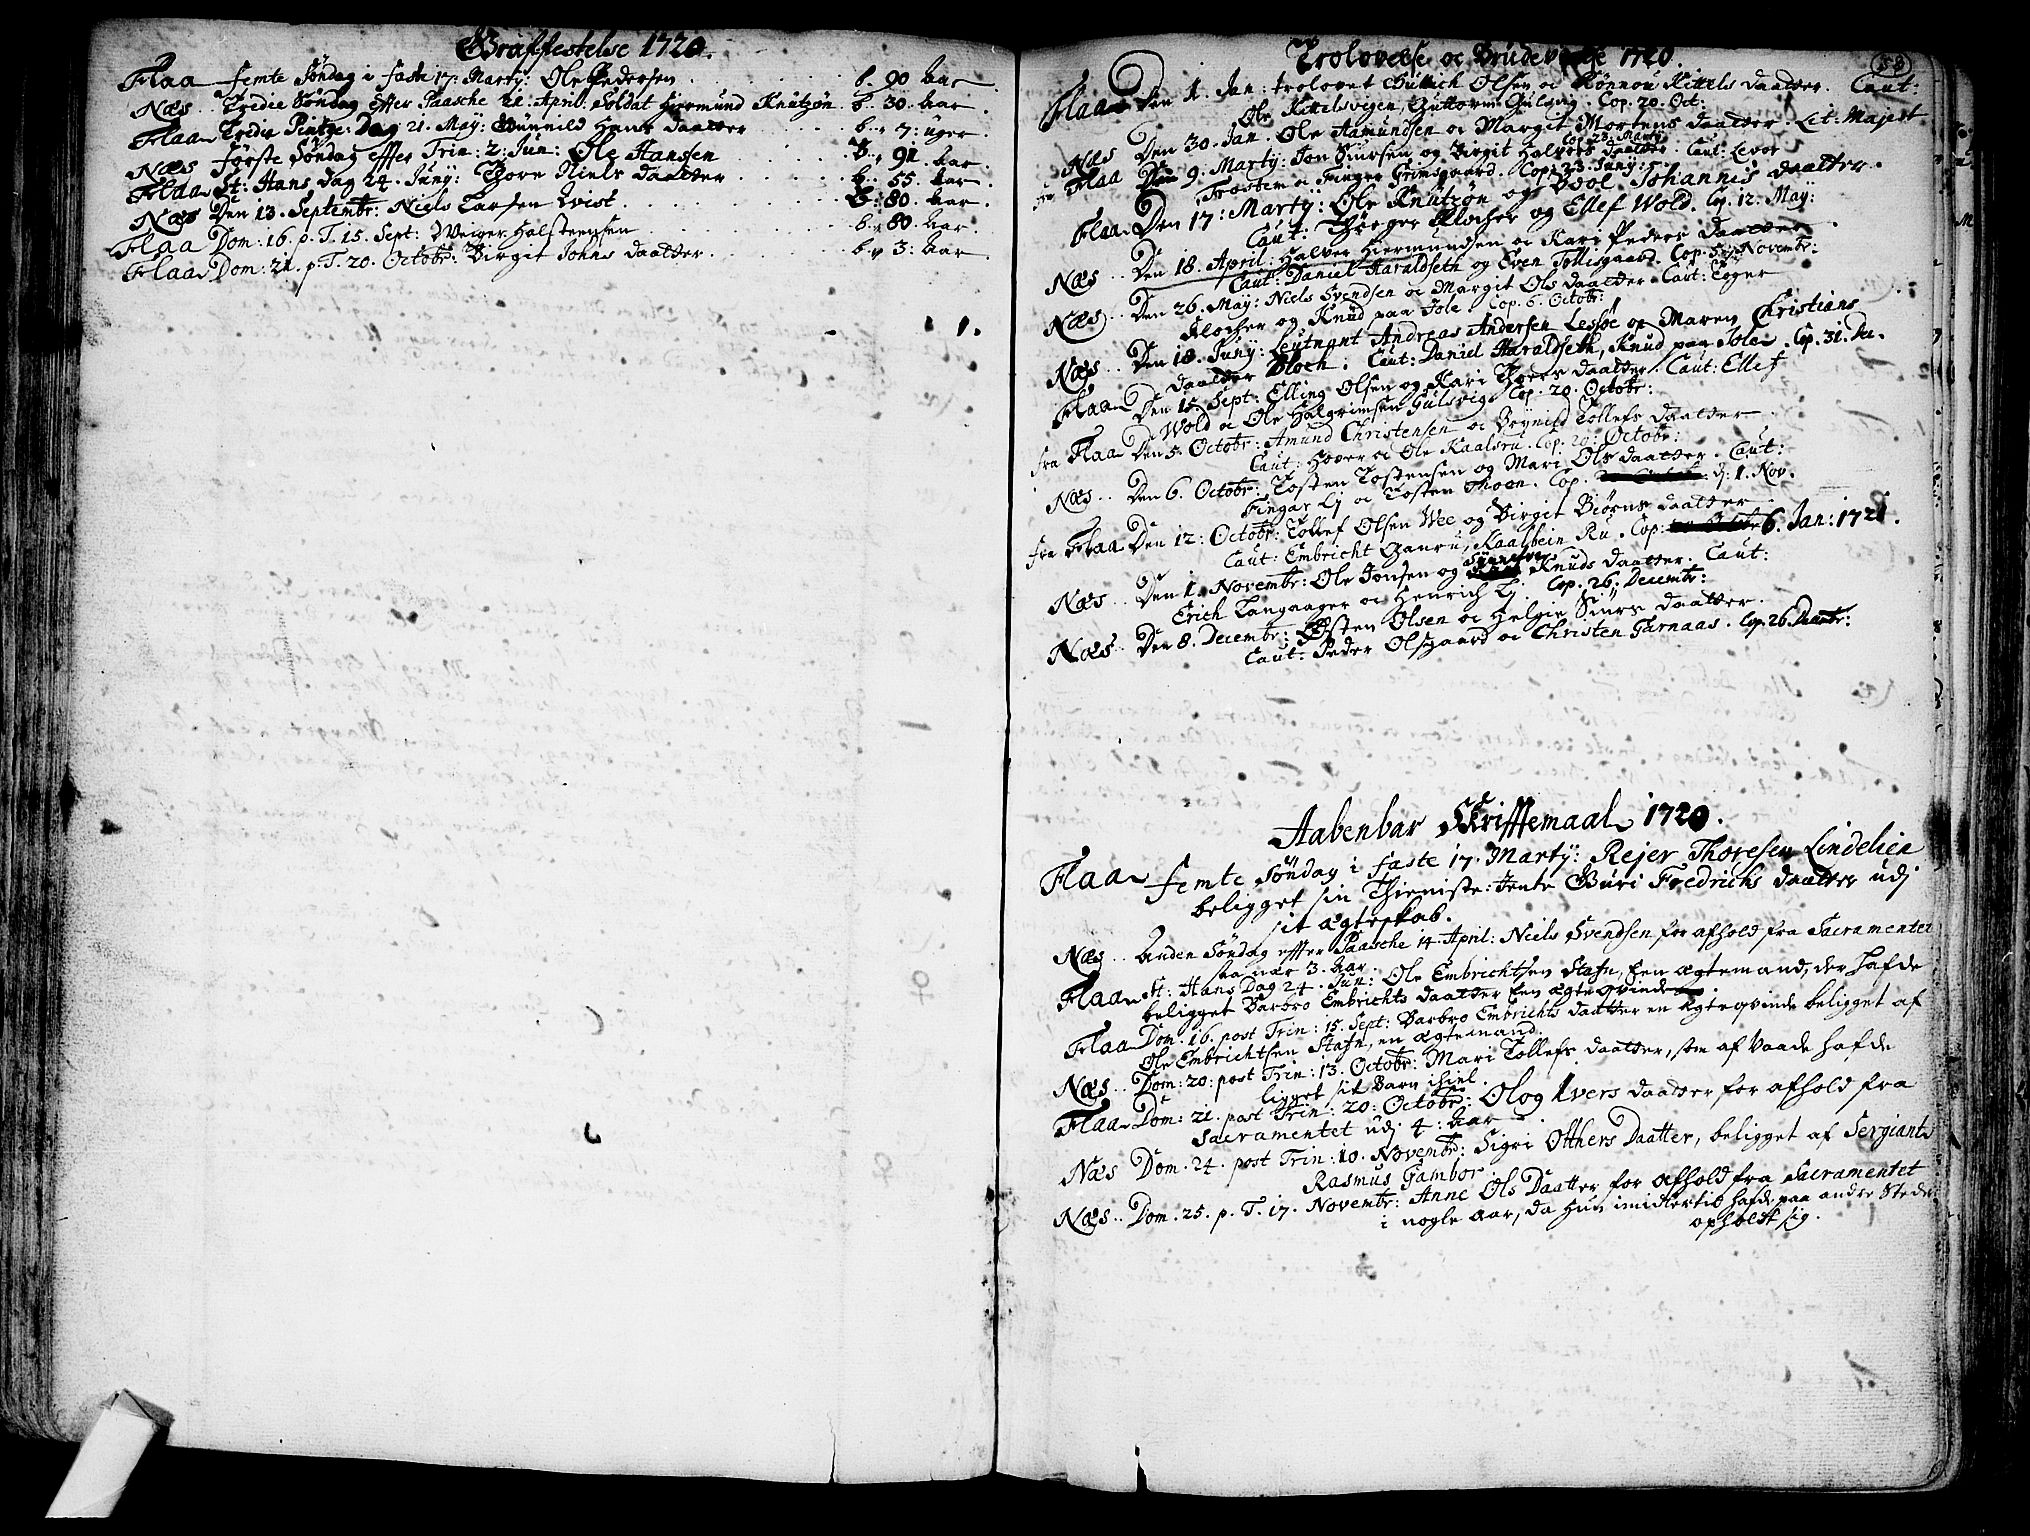 Graffestelse 1720.
Flaa femte Søndag i faste 17: Martÿ: Ole Pedersen b. 90 Aar
Næs Tredie Søndag effter Paasche 21. April: Soldat Hiermund Knutzøn b. 30. Aar
Flaa Tredie Pintze: Dag 21. Maÿ: Gunnild Hans daatter b. 7: uger.
Næs Første Søndag effter Trin: 2: Jun: Ole Hanssen b. 91. Aar.
Flaa St: Hans dag 24. Junÿ: Thore Niels daatter b. 55. Aar.
Næs Den 13. Septembr: Niels Larsen Qvist b. 80. Aar.
Flaa Dom: 16. p. T. 15. Sept: Weiger Halsteensen b. 80 Aar.
Flaa Dom: 21. p. T. 20. Octobr: Birgit Johns daatter b. 3: Aar.
58
Trolovelse oc Brudevielse 1720.
Flaa Den 1. Jan: trolovet Gullich Olsen oc Rønnou Kittels daatter. Caut:
Ole Kittelsvigen, Guttorm Gulsvig. Cop. 20. Oct:
Næs Den 30. Jan: Ole Aamundsen oc Margit Mortens daatter. Lit: Majest
fra Flaa Den 9. Martÿ: Jon Siursen og Birgit Halvors daatter. Caut: Levor
Trostem oc Finger Grimsgaard. Cop: 23. Junÿ:
Flaa Den 17: Martÿ: Ole Knutzøn og Bool Johannis daatter.
Caut: Thorger Klocher og Ellef Wold. Cop. 12. Maÿ:
Næs Den 18. April: Halvor Hiermundsen oc Kari Peders daatter.
Caut: Daniel Haraldseth og Even Tollisgaard. Cop. 5. Novembr:
Næs Den 26. Maÿ: Niels Svendsen oc Margit Ols daatter. Caut:
Klocher og Knud paa Jole. Cop. 6. Octobr:
Næs Den 18. Junÿ: Leutnant Andreas Andersen Lessøe og Maren Christians
daatter Bloch. Caut: Daniel Haraldseth, Knud paa Jole. Cop. 31. De.
Flaa Den 15. Sept: Elling Olsen og Kari Thores daatter. Caut: Ellef
Wold oc Ole Halgrimsen Gulsvig. Cop. 20. Octobr:
fra Flaa Den 5. Octobr: Amund Christensen oc Tollefs daatter
Caut: Hover oc Ole Kaalsrü. Cop. 20: Octobr:
Næs Den 6. Octobr: Tosten Tostensen og Mari Ols daatter. Caut:
Fingar Lj oc Tosten Thoen. Cop. d: 1. Nov.
fra Flaa Den 12: Octobr: Tollef Olsen Wee og Birgit Biørns daatter
Caut: Embricht Ganrü, Kaalbein Ru. Cop: 6. Jan: 1721.
Næs Den 1. Novembr: Ole Jonsen og Knuds daatter. Caut:
Erich Langaager oc Henrich Lj. Cop. 26. Decembr:
Næs Den 8. Decembr: Østen Olsen oc Helgie Siurs daatter.
Caut: Peder Olsgaard oc Christen Garnaas. Cop. 26. Decembr:
Aabenbar Skrifftemaal 1720.
Flaa femte Søndag i faste 17. Martÿ: Rejer Thoresen Lindelien
beligget sin Thieniste: Jente Guri Fredrichs daatter udj
sit ægteskab.
Næs Anden Søndag effter Paasche 14. April: Niels Svendsen for afhold fra Sacramentet
paa nær 3. Aar.
Flaa St: Hans Dag 24. Jun: Ole Embrichtsen Stafn, Een ægtemand, der hafde
beligget Barbro Embrichts daatter Een ægteqvinde.
Flaa Dom. 16. post Trin: 15. Sept: Barbro Embrichts daatter en ægteqvinde beligget af
Ole Embrichtsen Stafn, en ægtemand.
Næs Dom: 20: post Trin: 13. Octobr: Mari Tollefs daatter, som af Vaade hafde
ligget sit Barn ihiel.
Flaa Dom: 21. post Trin: 20: Octobr: Olog Ivers daatter for afhold fra
Sacramentet udj 4: Aar
Næs Dom. 24. post Trin: 10. Novembr: Sigri Otthers Daatter, beligget af Sergiant
Rasmus Gambor
Næs Dom. 25. p. T. 17. Novembr: Anne Ols Daatter for afhold fra Sacramentet
i nogle aar, da hun imidlertid hafde paa andre Steder
opholdt sig.